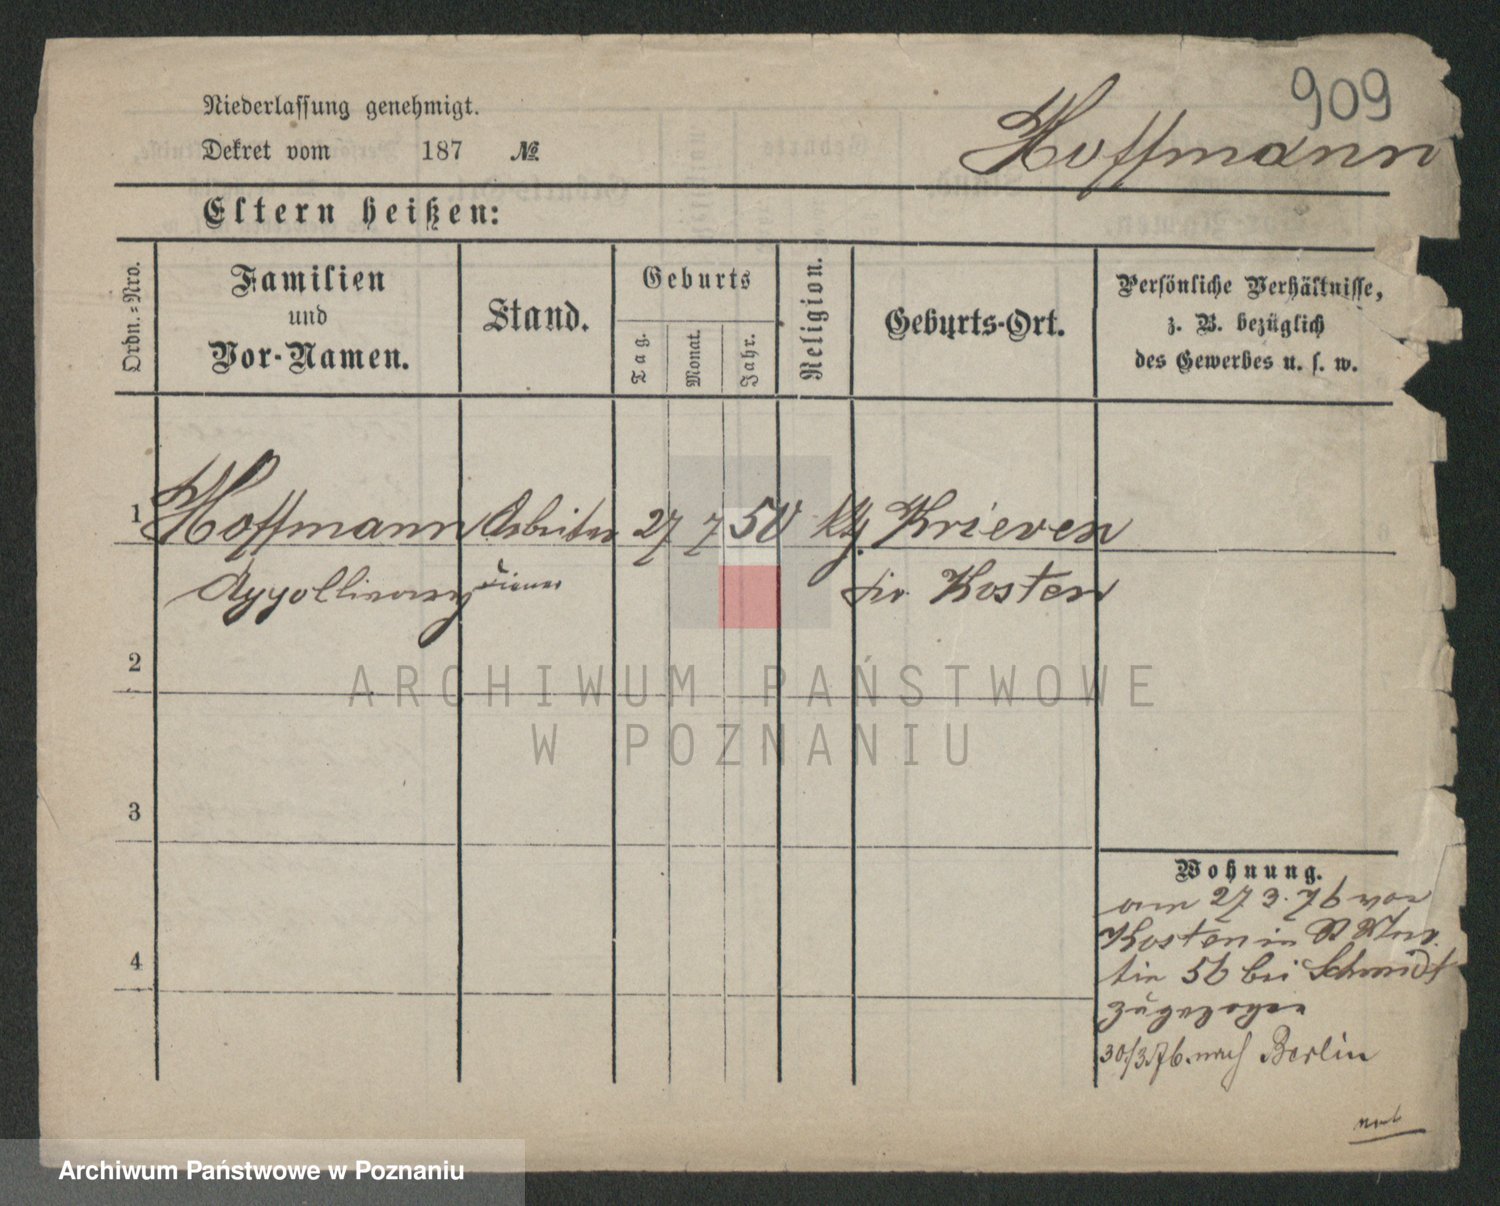 909
Niederlassung genehmigt.
Hoffmann
Dekret vom 187 №
Eltern heißen:
Ordn.-Nro.
Familien
und
Vor-Namen.
Stand.
Geburts
Tag.
Monat.
Jahr.
Religion.
Geburts-Ort.
Persönliche Verhältnisse,
z. B. bezüglich
des Gewerbes u. s. w.
1 Hoffmann Arbeiter 27 7 50 kth. Krieven
Appollinary Diener Kr Kosten
2
ARCHIWUM PAŃSTWOWE
W POZNANIU
3
Wohnung.
27 3. 76 von
Kosten in
tin 56 bei Schmidt
zugezogen
4
30/3.76. nach Berlin
Archiwum Państwowe w Poznaniu